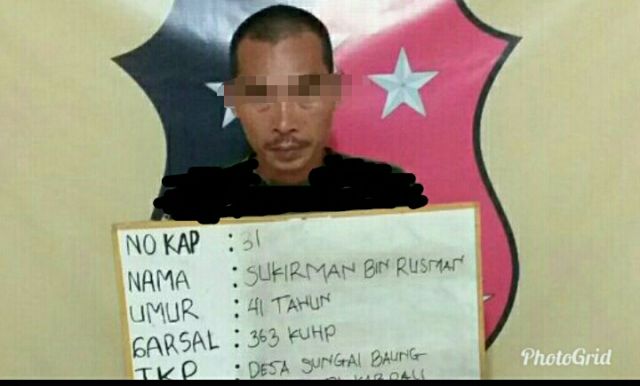 NO KAP : 31
NAMA : SUKIRMAN BIN RUSMAN
UMUR : 41 TAHUN
GARSAL : 363 KUHP
TKP : DESA SUNGAI BAUNG
KAB PALI
PhotoGrid